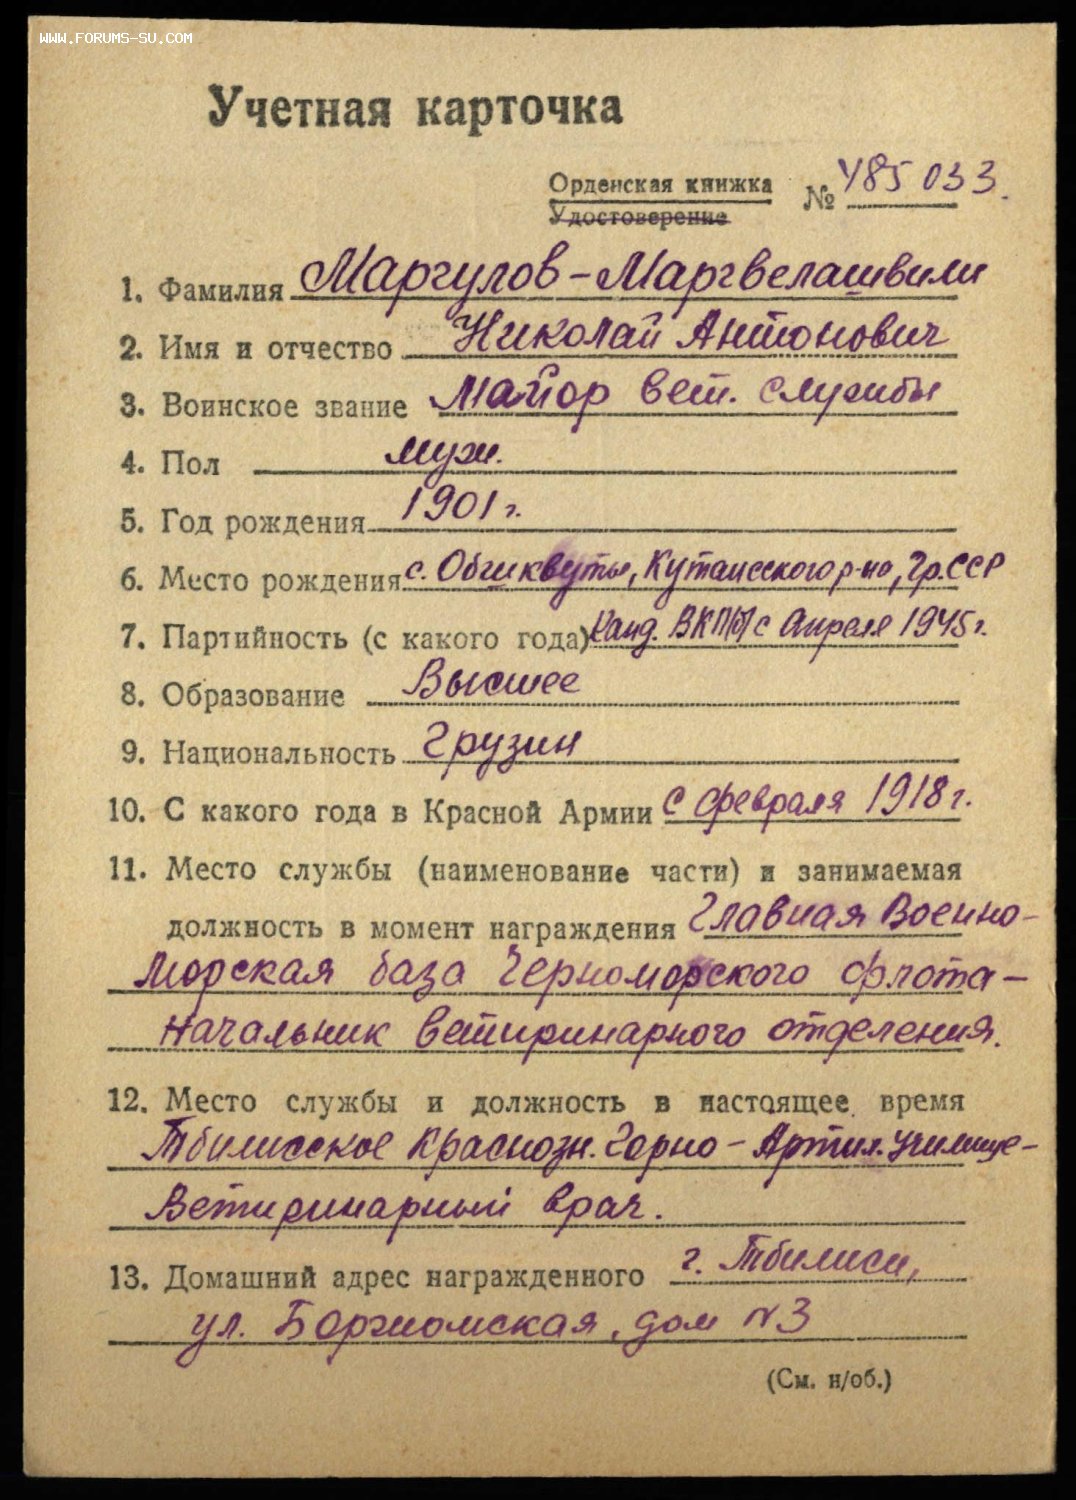 WWW.FORUMS-SU.COM
Учетная карточка
Орденская книжка
Удостоверение
№ У85 033.
1. Фамилия Маргулов-Маргвелашвили
2. Имя и отчество Николай Антонович
3. Воинское звание Майор вет. службы
4. Пол муж.
5. Год рождения 1901 г.
6. Место рождения с. Кутаисского р-на, Гр.ССР
7. Партийность (с какого года) Канд. ВКП(б) с Апреля 1945 г.
8. Образование Высшее
9. Национальность Грузин
10. С какого года в Красной Армии С февраля 1918 г.
11. Место службы (наименование части) и занимаемая
должность в момент награждения Главная Военно-
Морская база Черноморского флота-
Начальник ветиринарного отделения.
12. Место службы и должность в настоящее время
Тбилисское Краснозн. Горно-Артил. училище-
Ветиринарный врач.
13. Домашний адрес награжденного г. Тбилиси,
ул. Боржомская, дом N 3
(См. н/об.)